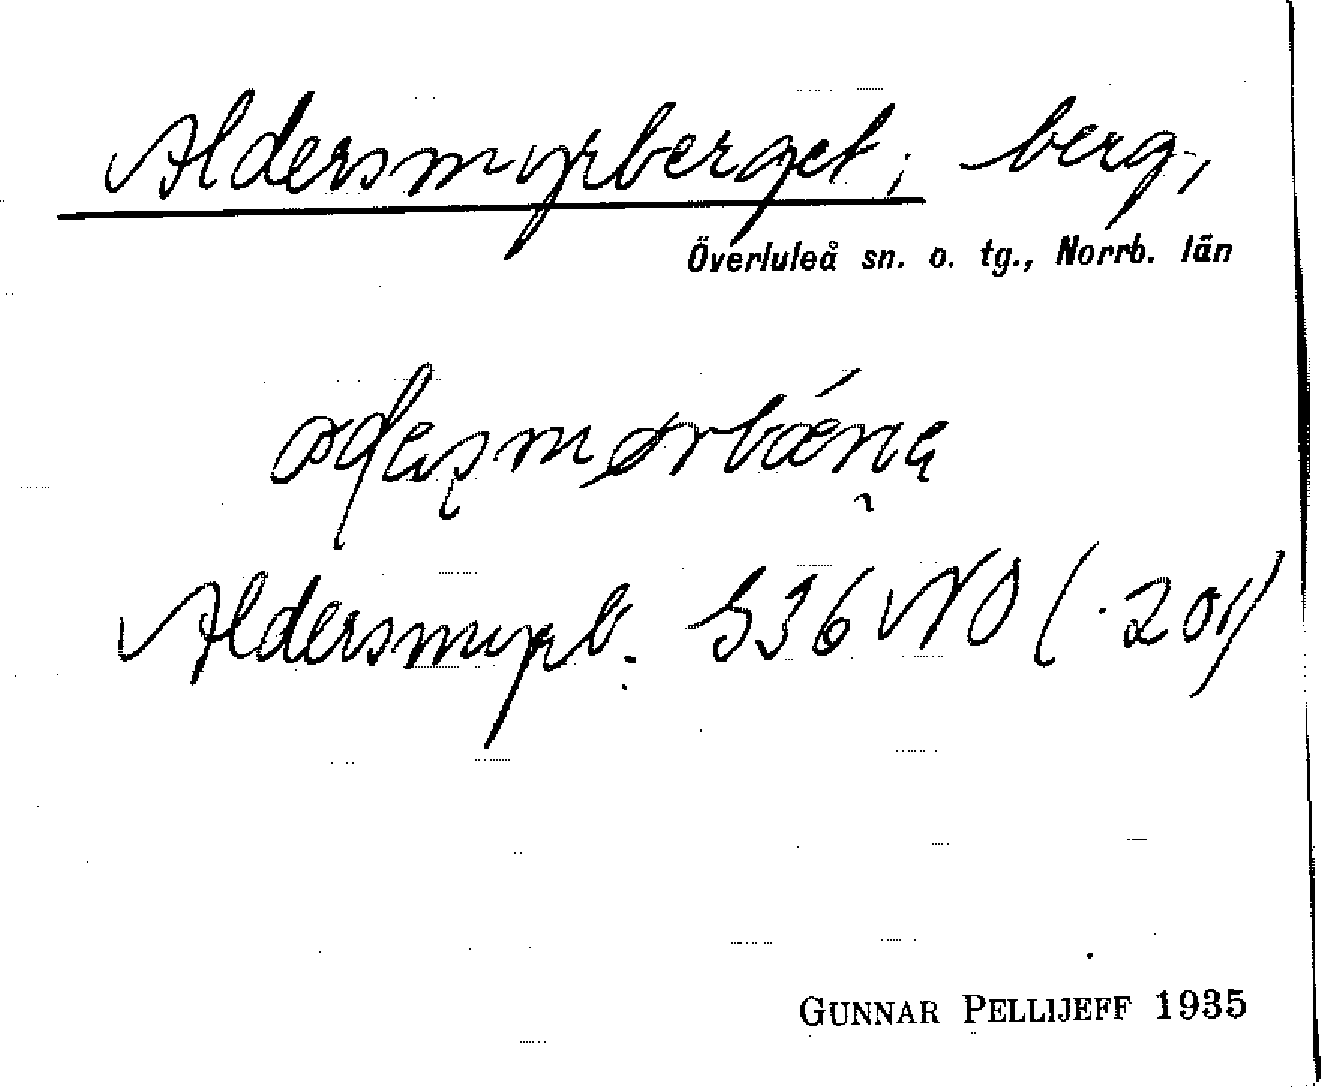 Aldersmyrberget, berg,
Överluleå sn. o. tg., Norrb. län
Aldersmyrb. S36 NO (.201)
GUNNAR PELLIJEFF 1935